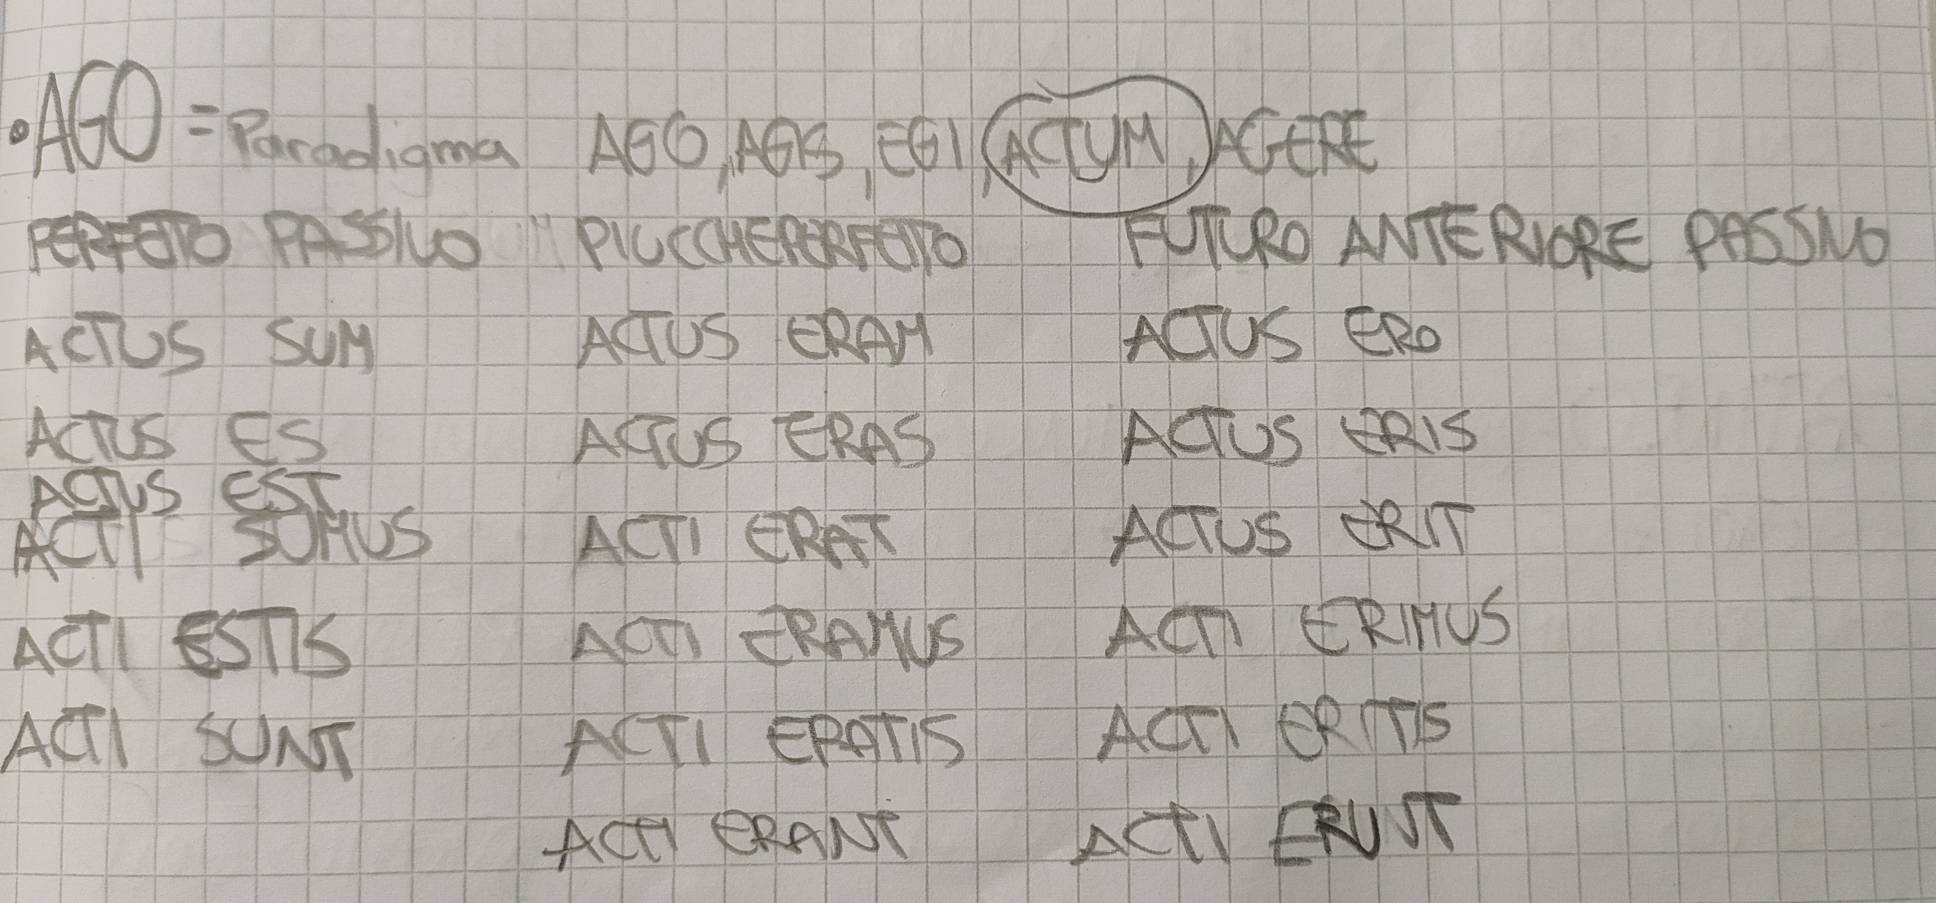 •AGO = Paradigma AGO, AGIS, EGI, ACTUM, AGERE
PERFETTO PASSIVO " PIUCCHEPERFETTO FUTURO ANTERIORE PASSIVO
ACTUS SUM ACTUS ERAM ACTUS ERO
ACTUS ES ACTUS ERAS ACTUS ERIS
ACTUS EST
ACTI SUMUS ACTI ERAT ACTUS ERIT
ACTI ESTIS ACTI ERAMUS ACTI ERIMUS
ACTI SUNT ACTI ERATIS ACTI ERITIS
ACTI ERANT ACTI ERUNT